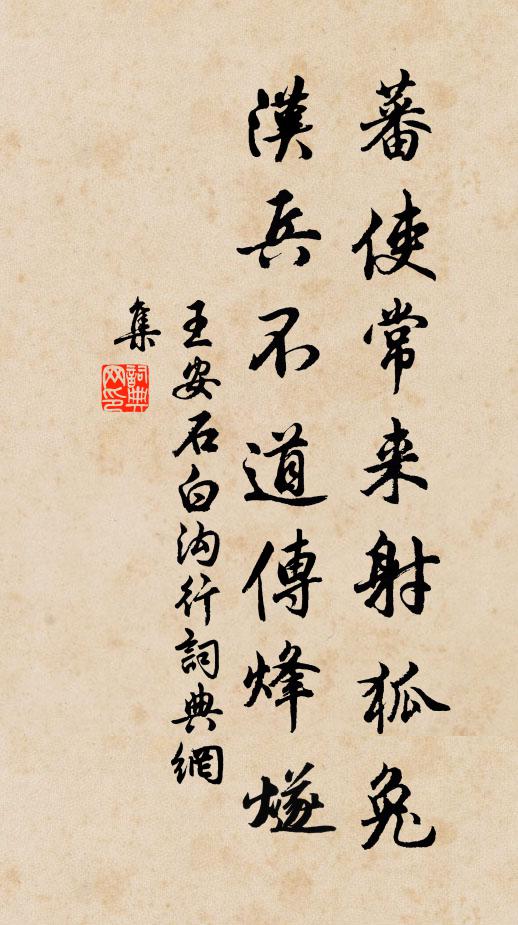 蕃使常来射狐兔
漢兵不道傳烽燧
王安石白沟行詞典網
集
詞典
网印